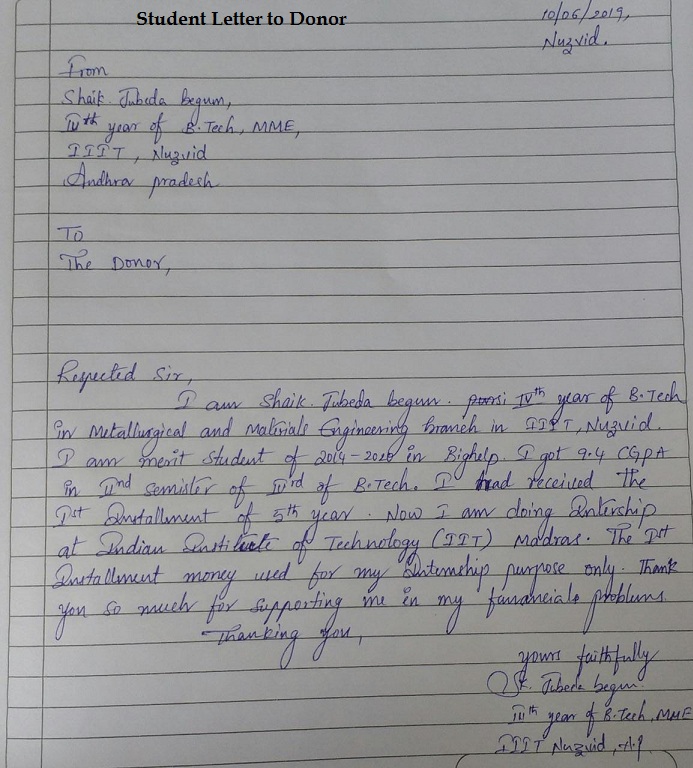 Student Letter to Donor
10/06/2019,
Nuzvid.
From
Shaik. Jubeda begum,
IVth year of B.Tech, MME,
IIIT, Nuzvid
Andhra pradesh
To
The Donor,
Respected Sir,
I am Shaik. Jubeda begum. IVth year of B.Tech
in Metallurgical and Materials Engineering branch in IIIT, Nuzvid.
I am merit student of 2014-2020 in Bighelp. I got 9.4 CGPA
in IInd semister of of B.Tech. I had received the
Ist Installment of 5th year. Now I am doing Intership
at Indian Institute of Technology (IIT) Madras. The Ist
Installment money used for my Internship purpose only. Thank
you so much for supporting me in my problems.
Thanking you,
yours faithfully
Sk. Jubeda begum
year of B.Tech, MME
IIIT Nuzvid, A.P